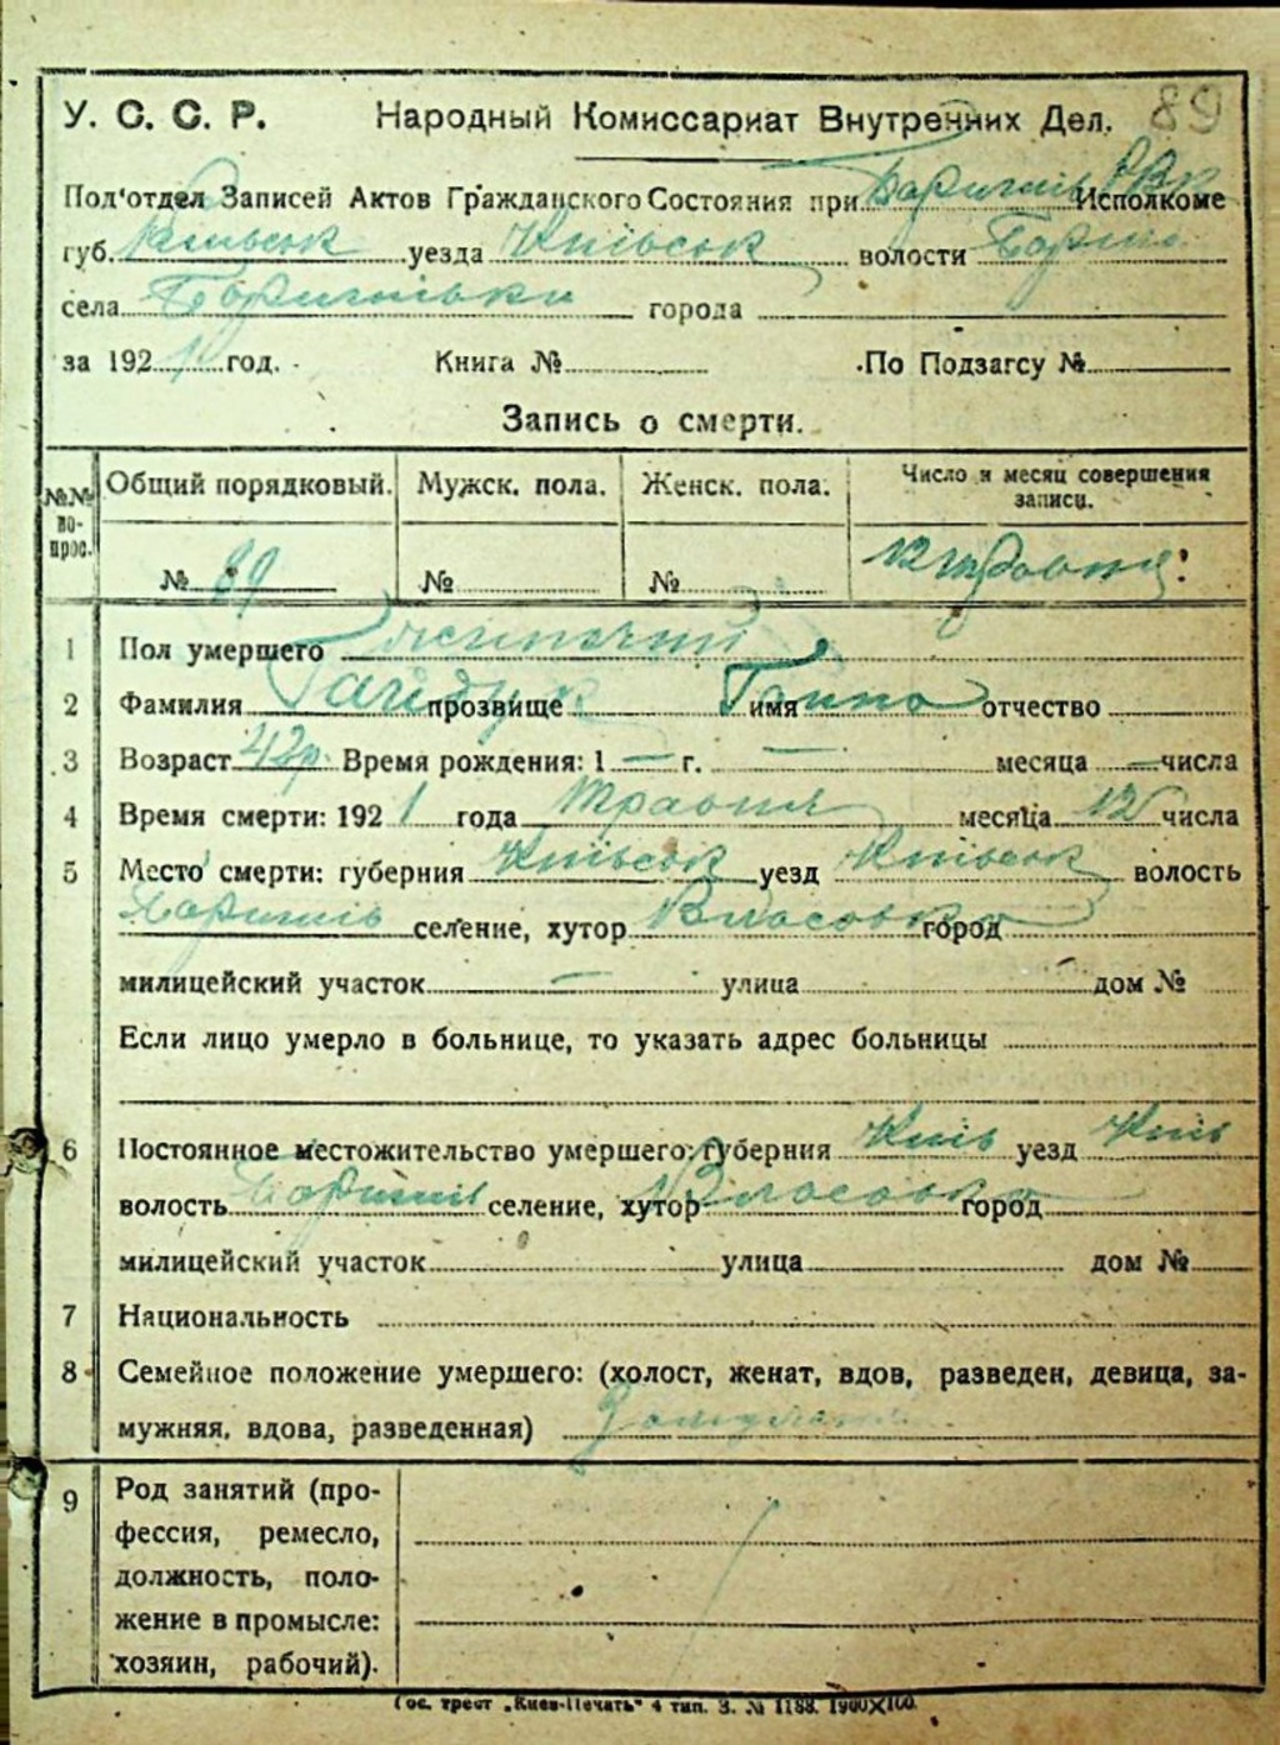 У. С. С. Р. Народный Комиссариат Внутренних Дел. 89
Под'отдел Записей Актов Гражданского Состояния при Исполкоме
губ. уезда Київськ волости
села города
за 192 год. Книга № По Подзагсу №
Запись о смерти.
№№ воп-рос. Общий порядковый. Мужск. пола. Женск. пола. Число и месяц совершения записи.
№ 89 № №
1 Пол умершего
2 Фамилия Гайдук прозвище имя Ганна отчество
3 Возраст 42 р. Время рождения: 1 — г. — месяца — числа
4 Время смерти: 1921 года травня месяца 12 числа
5 Место смерти: губерния Київськ уезд Київськ волость
селение, хутор Власовка город
милицейский участок — улица дом №
Если лицо умерло в больнице, то указать адрес больницы
6 Постоянное местожительство умершего: губерния Київ уезд Київ
волость селение, хутор Власовка город
милицейский участок улица дом №
7 Национальность
8 Семейное положение умершего: (холост, женат, вдов, разведен, девица, за-
мужняя, вдова, разведенная)
9 Род занятий (про-
фессия, ремесло,
должность, поло-
жение в промысле:
хозяин, рабочий).
Гос. трест „Киев-Печать" 4 тип. З. № 1188. 1900X100.